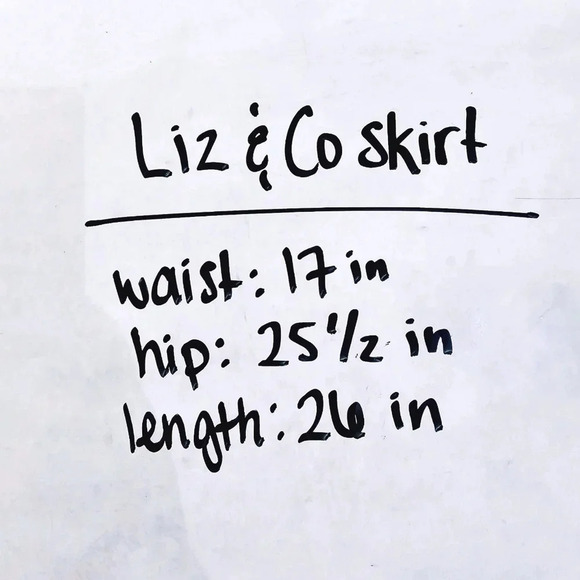 Liz & Co skirt
waist: 17 in
hip: 25 1/2 in
length: 26 in